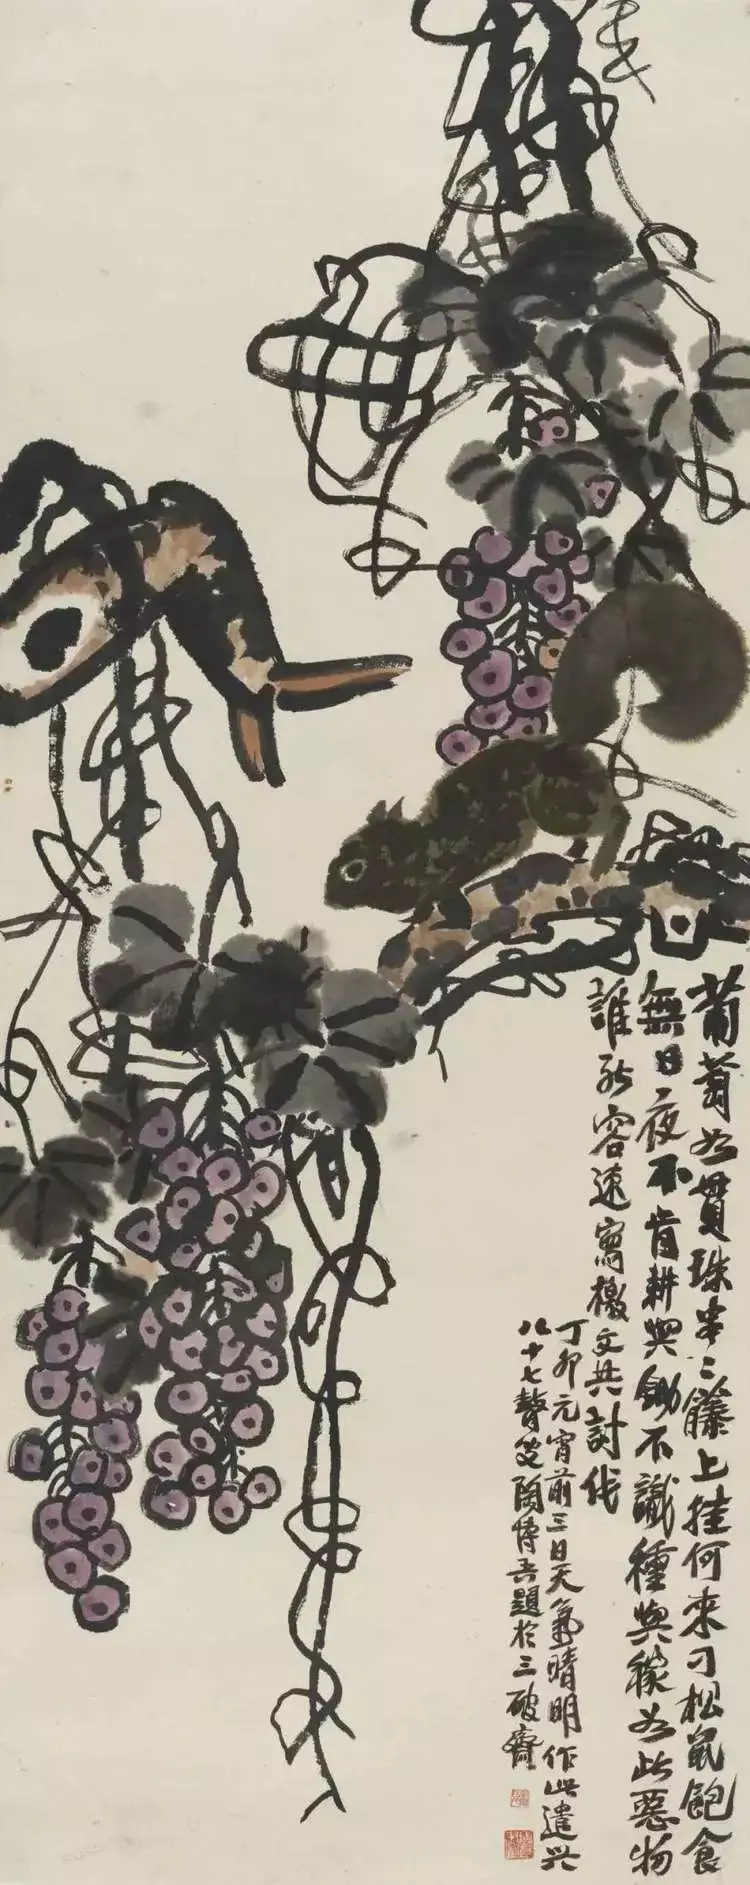 葡萄如貫珠串〻籐上挂何來刁松鼠飽食
無日夜不肯耕與鋤不識種與稼如此惡物
誰能容速寫檄文共討伐
丁卯元宵前三日天氣晴明作此遣興
八十七聱叟陶博吾題於三破齋